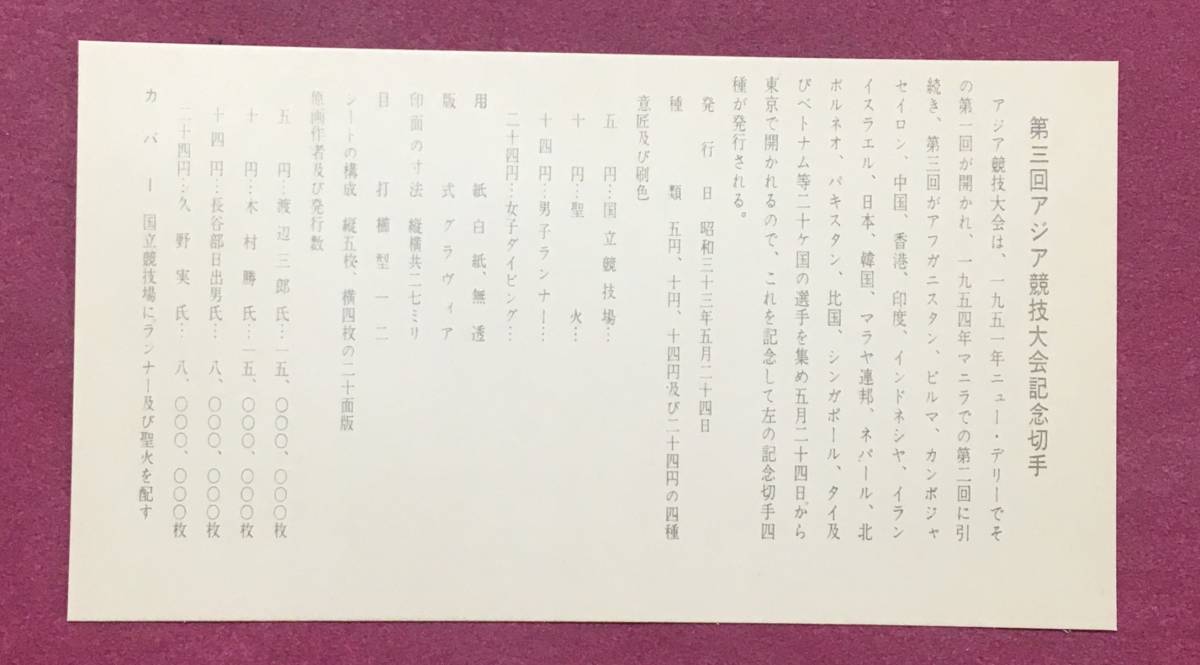 第三回アジア競技大会記念切手
アジア競技大会は、一九五一年ニュー・デリーでそ
の第一回が開かれ、一九五四年マニラでの第二回に引
続き、第三回がアフガニスタン、ビルマ、カンボジャ
セイロン、中国、香港、印度、インドネシヤ、イラン
イスラエル、日本、韓国、マラヤ連邦、ネパール、北
ボルネオ、パキスタン、比国、シンガポール、タイ及
びベトナム等二十ケ国の選手を集め五月二十四日から
東京で開かれるので、これを記念して左の記念切手四
種が発行される。
発行日 昭和三十三年五月二十四日
種類 五円、十円、十四円及び二十四円の四種
意匠及び刷色
五円…国立競技場…
十円…聖火…
十四円…男子ランナー…
二十四円…女子ダイビング…
用紙 白紙、無透
版式 グラヴィア
印面の寸法 縦横共二七ミリ
目打 櫛型一二
シートの構成 縦五枚、横四枚の二十面版
原画作者及び発行数
五円…渡辺三郎氏…一五、〇〇〇、〇〇〇枚
十円…木村勝氏…一五、〇〇〇、〇〇〇枚
十四円…長谷部日出男氏…八、〇〇〇、〇〇〇枚
二十四円…久野実氏…八、〇〇〇、〇〇〇枚
カバー 国立競技場にランナー及び聖火を配す